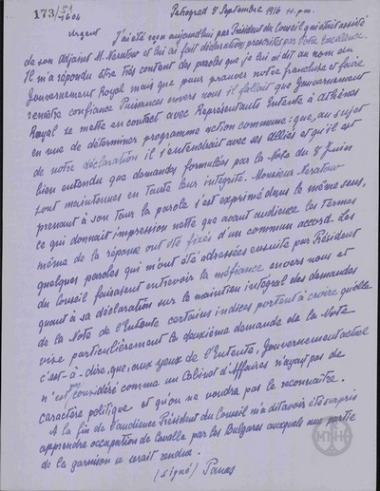 173/51
7604
Petrograd 8 Septembre 1916 10. p.m.
Urgent J'ai été reçu aujourd'hui par Président du Conseil qui était assisté
de son Adjoint M. Neratow et lui ai fait déclaration prescrites par Votre Excellence.
Il m'a répondu être très content des paroles que je lui ai dit au nom seu
Gouvernement Royal mais que pour prouver notre franchise et faire
renaître confiance Puissances envers nous il fallait que Gouvernement
Royal se mette en contact avec Représentants Entente à Athènes
en vue de déterminer programme action commune: que, au sujet
de notre déclaration il s'entendrait avec ses alliés et qu'il est
bien entendu que demandes formulées par la Note du 8 Juin
sont maintenues en toute leur intégrité. Monsieur Neratow
prenant à son tour la parole s'est exprimé dans le même sens,
ce qui donnait impression nette que avant audience les termes
même de la réponse ont été fixés d'un commun accord. Les
quelques paroles qui m'ont été adressées ensuite par Président
du Conseil faisaient entrevoir la méfiance envers nous et
quant à sa déclaration sur le maintien integral des demandes
de la Note de l'Entente certains indices portent à croire qu'elle
vise particulièrement la deuxième demande de la Note
c'est-à-dire que, aux yeux de l'Entente, Gouvernement actuel
n'est considéré comme un Cabinet d'Affaires n'ayant pas de
caractère politique et qu'on ne voudra pas le reconnaître.
A la fin de l'audience Président du Conseil m'a dit avoir été surpris
apprendre occupation de Cavalla par les Bulgares auxquels une partie
de la garnison se serait rendue.
(signé) Panas